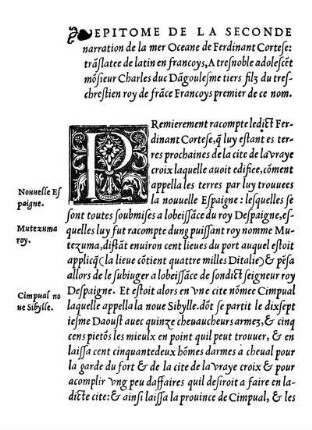 ❧EPITOME DE LA SECONDE
narration de la mer Oceane de Ferdinant Cortese:
trãslatee de latin en francoys, A tresnoble adolescẽt
mõsieur Charles duc Dãgoulesme tiers filz du tres-
chrestien roy de frãce Francoys premier de ce nom.
PRemierement racompte ledict Fer-
dinant Cortese, q̃ luy estant es ter-
res prochaines de la cite de la vraye
croix laquelle auoit edifiee, cõment
appella les terres par luy trouuees
la nouuelle Espaigne: lesquelles se
sont toutes soubmises a lobeissãce du roy Despaigne, es-
quelles luy fut racompte dung puissant roy nomme Mu-
tezuma, distãt enuiron cent lieues du port auquel estoit
applicq̃ (la lieue cõtient quattre milles Ditalie) & pẽsa
allors de le subiuger a lobeissãce de sondict seigneur roy
Despaigne. Et estoit alors en vne cite nõmee Cimpual
laquelle appella la noue Sibylle. dõt se partit le dixsept
iesme Daoust auec quinze cheuaucheurs armez, & cinq
cens pietõs les mieulx en point quil peut trouuer, & en
laissa cent cinquantedeux hõmes darmes a cheual pour
la garde du fort & de la cite de la vraye croix & pour
acomplir vng peu daffaires quil desiroit a faire en la-
dicte cite: & ainsi laissa la prouince de Cimpual, & les
Nouuelle Es
paigne.
Mutezuma
roy.
Cimpual no
ue Sibylle.